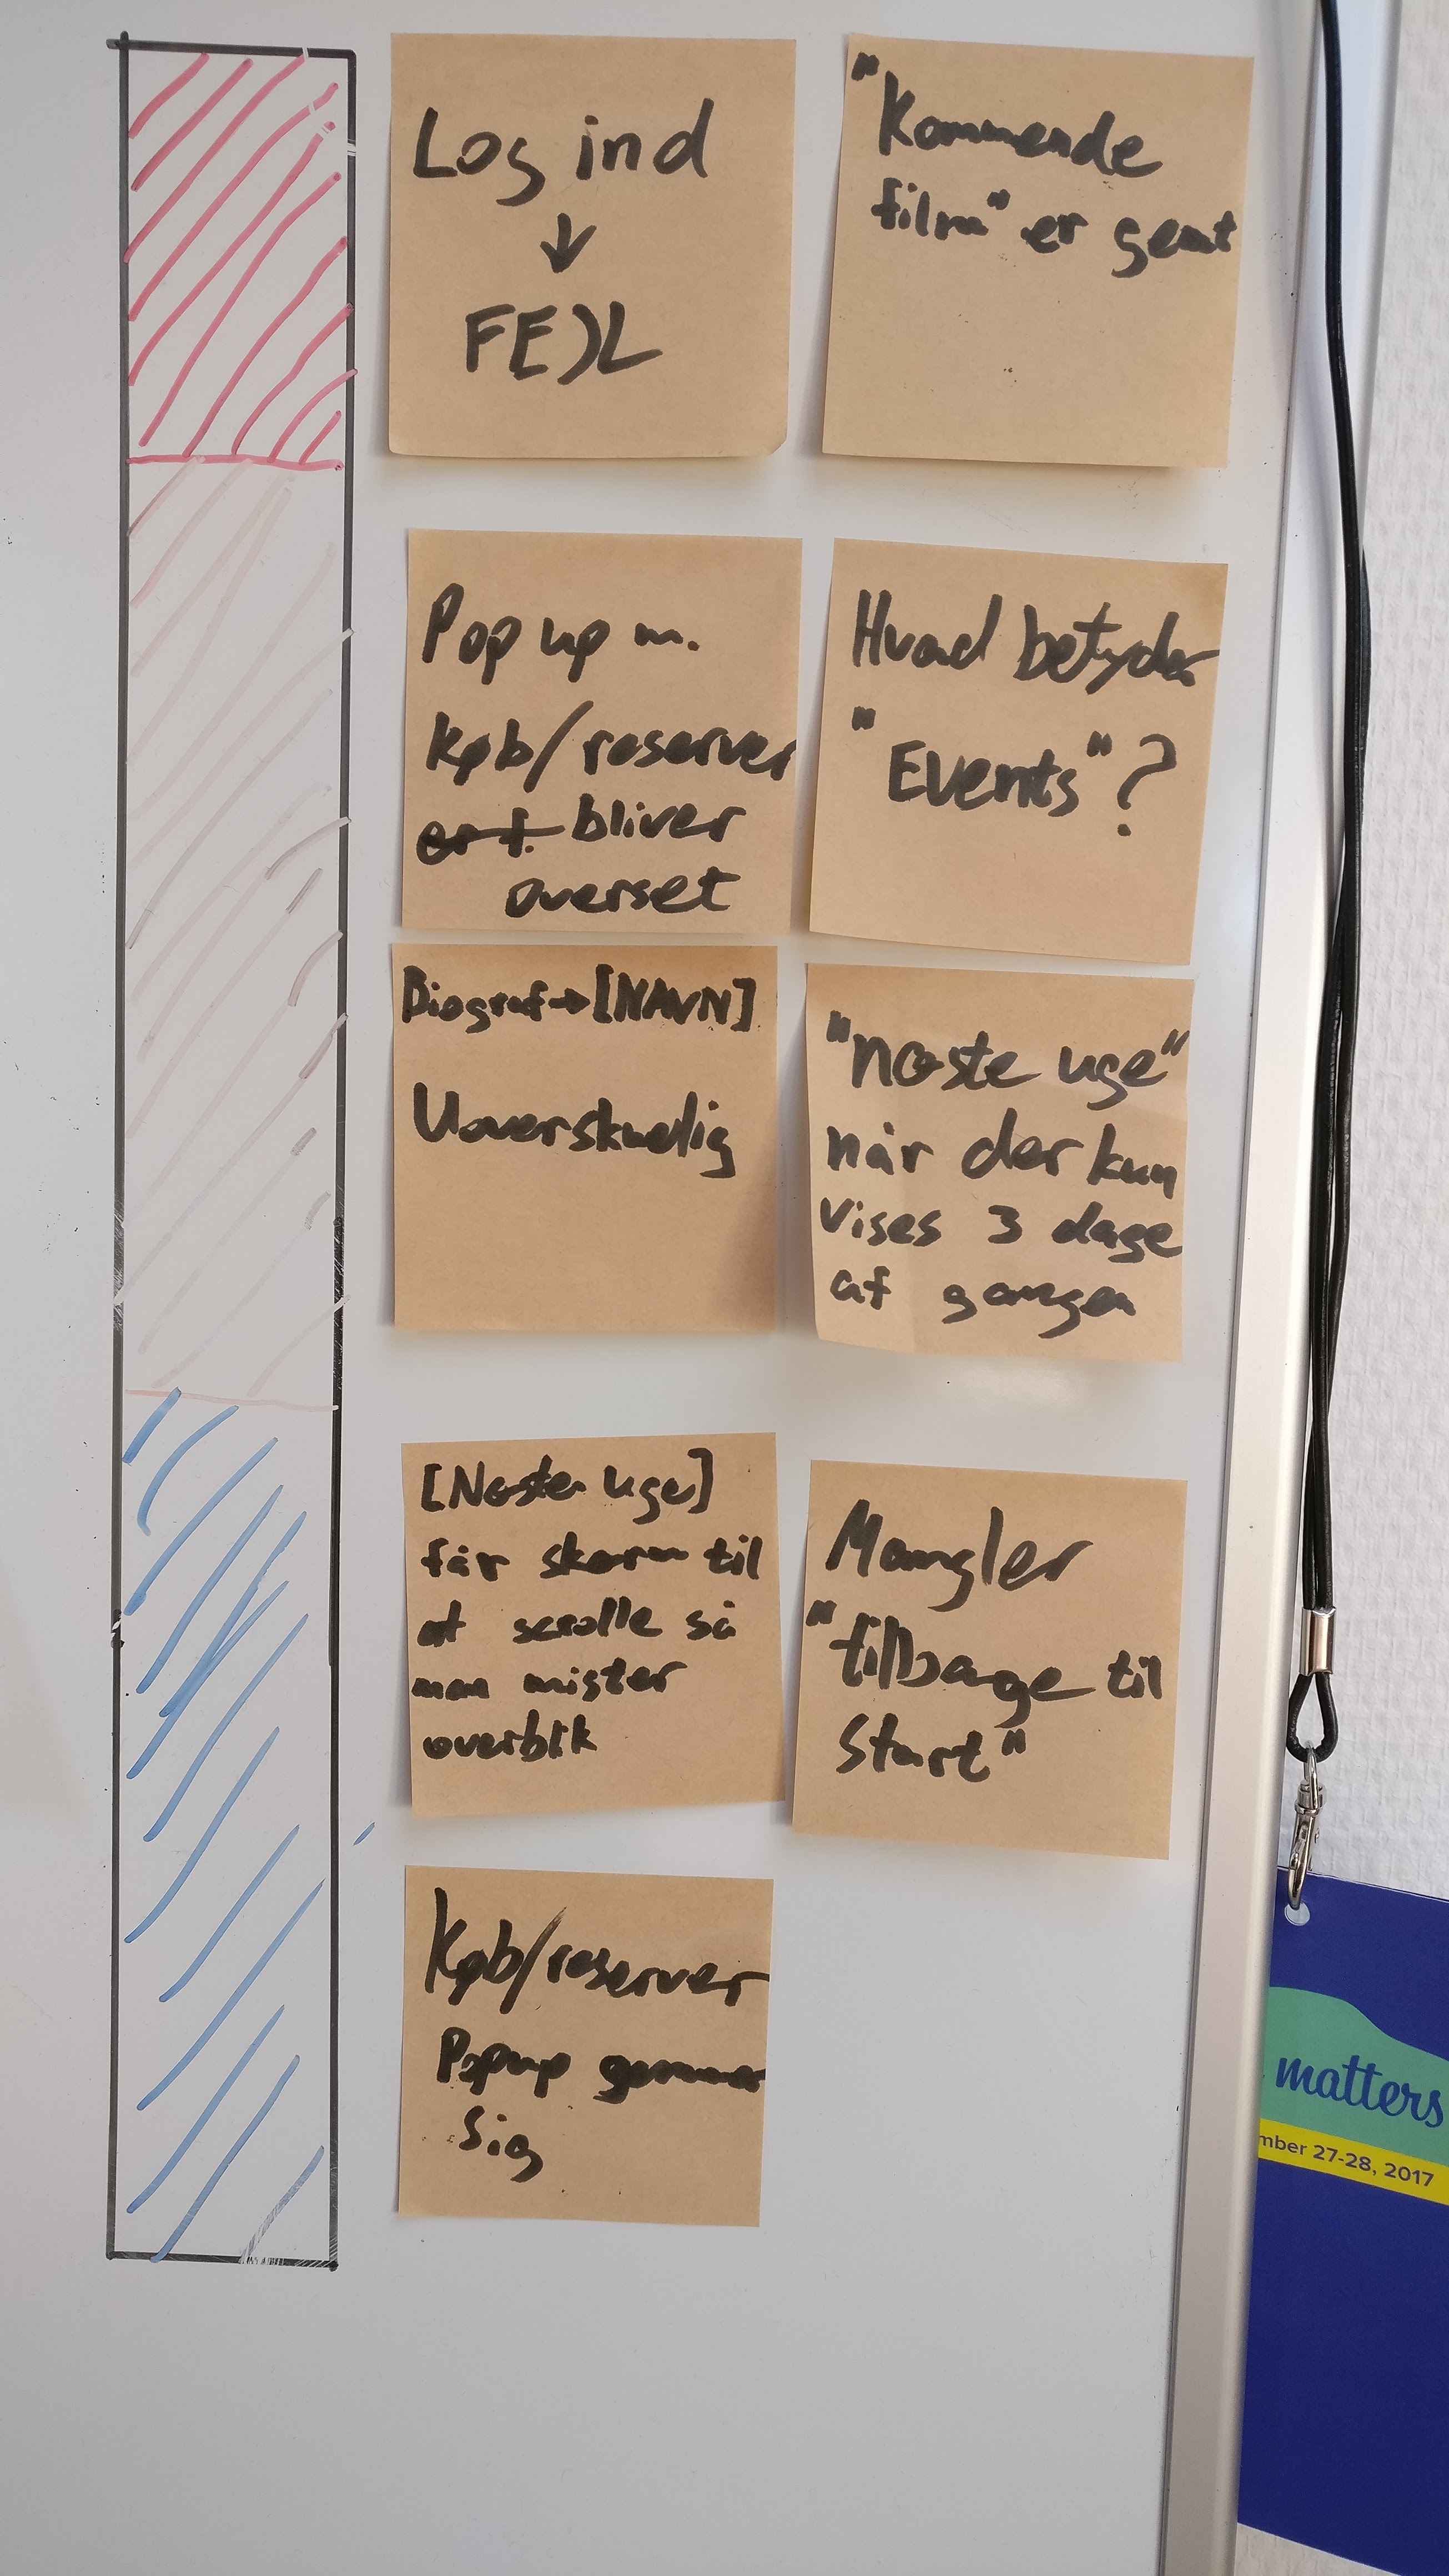 Log ind
↓
FEJL
"Kommende
film" er gemt
Pop up m.
køb/reserver
bliver
overset
Hvad betyder
"Events"?
Biograf→[NAVN]
Uoverskuelig
"næste uge"
når der kun
vises 3 dage
af gangen
[Næste uge]
får skærm til
at scrolle så
man mister
overblik
Mangler
"tilbage til
start"
Køb/reserver
Popup gemmer
sig
matters
mber 27-28, 2017